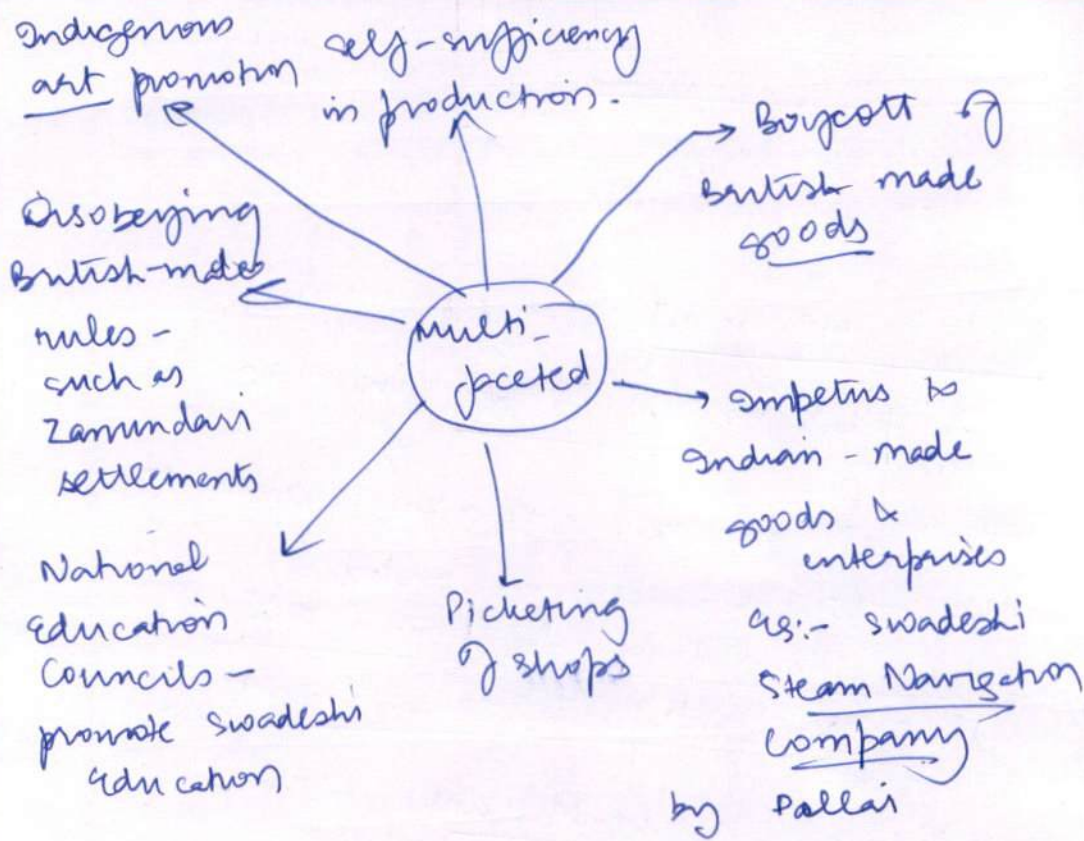 Indigenous
art promotion
self-sufficiency
in production.
Boycott of
British made
goods
Disobeying
British-made
rules -
such as
Zamindari
settlements
Multi-
faceted
Impetus to
Indian - made
goods &
enterprises
eg:- swadeshi
Steam Navigation
Company
by Pallai
National
Education
Councils -
promote swadeshi
Education
Picketing
of shops